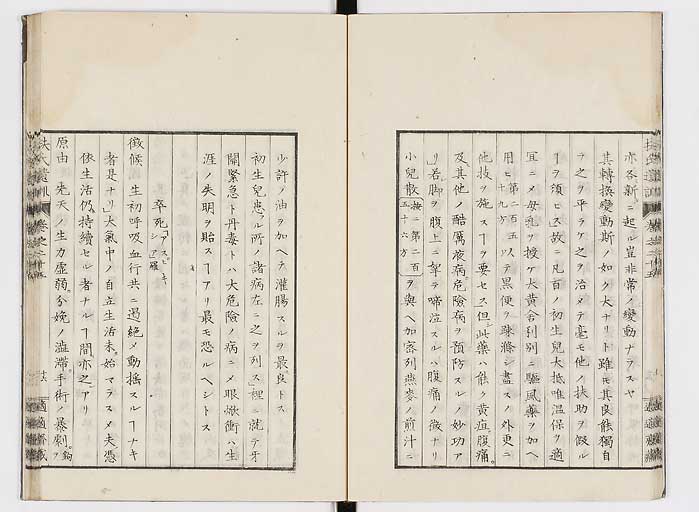 亦各新ニ起ル豈非常ノ變動ナラスヤ
其轉換變動斯ノ如ク大ナリト雖モ其良能獨自
ラ之ヲ平ラケ之ヲ治メテ毫モ他ノ扶助ヲ假ル
ヿヲ須ヒス故ニ凡百ノ初生兒大抵唯温保ヲ適
宜ニメ母乳ヲ授ケ大黄舎利別ニ驅風藥ヲ加ヘ
用ヒ第二百五十九方以テ黒便ヲ疎滌シ盡スノ外更ニ
他技ヲ施スヿヲ要セス但此藥ハ能ク黄疸腹痛
及其他ノ酷厲液病危險病ヲ預防スルノ妙功ア
リ若脚ヲ腹上ニ攣テ啼泣スルハ腹痛ノ徴ナリ
小兒散 第二百五十六方 ヲ與ヘ加密列燕麥ノ煎汁ニ
少許ノ油ヲ加ヘテ灌腸スルヲ最良トス
初生兒患フル所ノ諸病左ニ之ヲ列ス裡ニ就テ牙
關緊急ト丹毒トハ大危險ノ病ニメ眼焮衝ハ生
涯ノ失明ヲ貽スヿアリ最モ恐ルヘシトス
卒死 アスピキシア 羅
徴候 生初呼吸血行共ニ遏絶メ動揺スルヿナキ
者是ナリ大氣中ノ自立生活未始マラスメ夫憑
依生活仍持續セル者ナルヿ間亦之アリ
原由 先天ノ生力虚弱分娩ノ澁滯手術ノ暴劇鈎ヲ
扶氏遺訓 卷之二十五 十六 適適齋藏